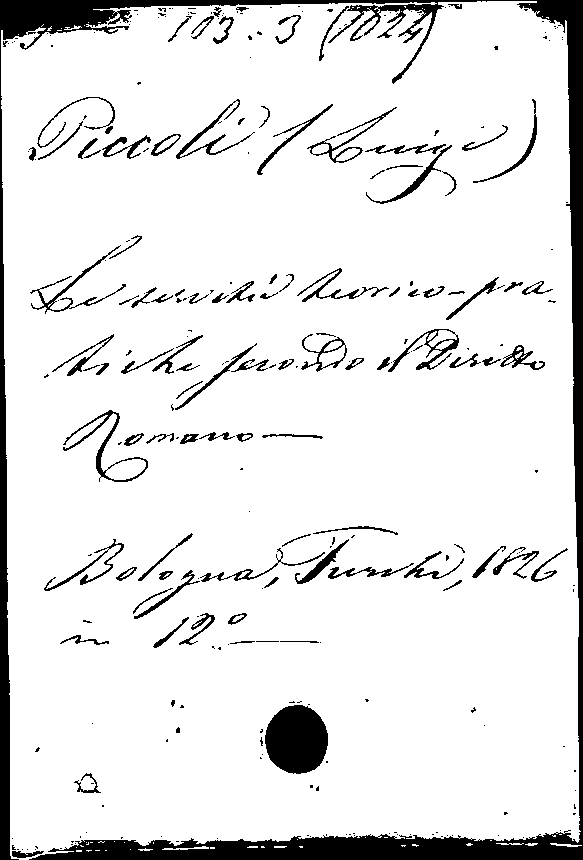 103. 3 (1024)
Piccoli (Luigi)
Le servitù teorico-pra-
tiche secondo il Diritto
Romano —
Bologna, Turchi, 1826
in 12° —